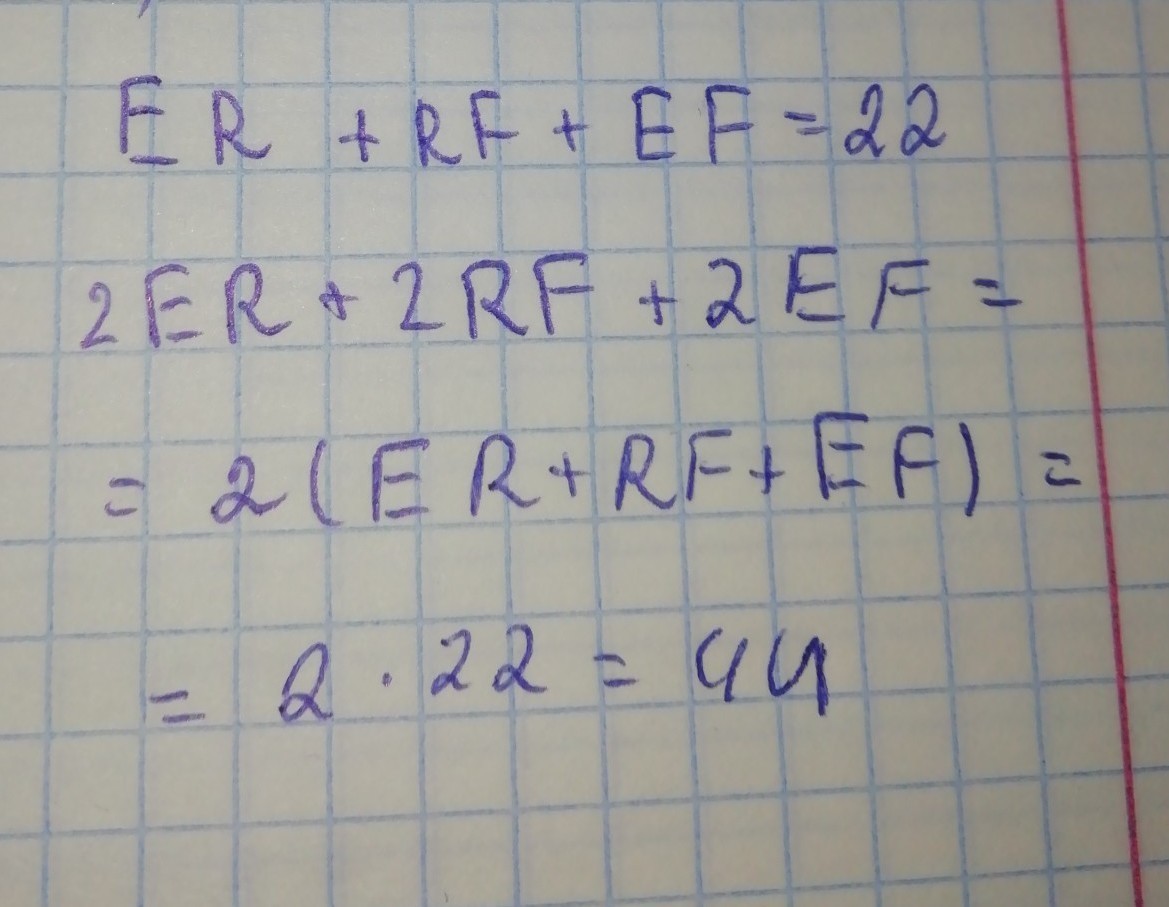 ER + RF + EF = 22
2ER + 2RF + 2EF =
= 2(ER + RF + EF) =
= 2 · 22 = 44